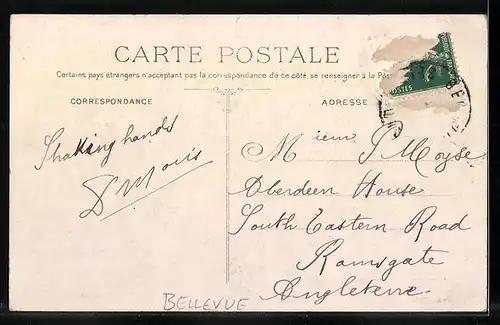 CARTE POSTALE
Certains pays étrangers n'acceptant pas la correspondance de ce côté, se renseigner à la Pos
CORRESPONDANCE
ADRESSE
POSTES
Shaking hands
D Mouis
Mieur J Moyse
Aberdeen House
South Eastern Road
Ramsgate
Angleterre
BELLEVUE